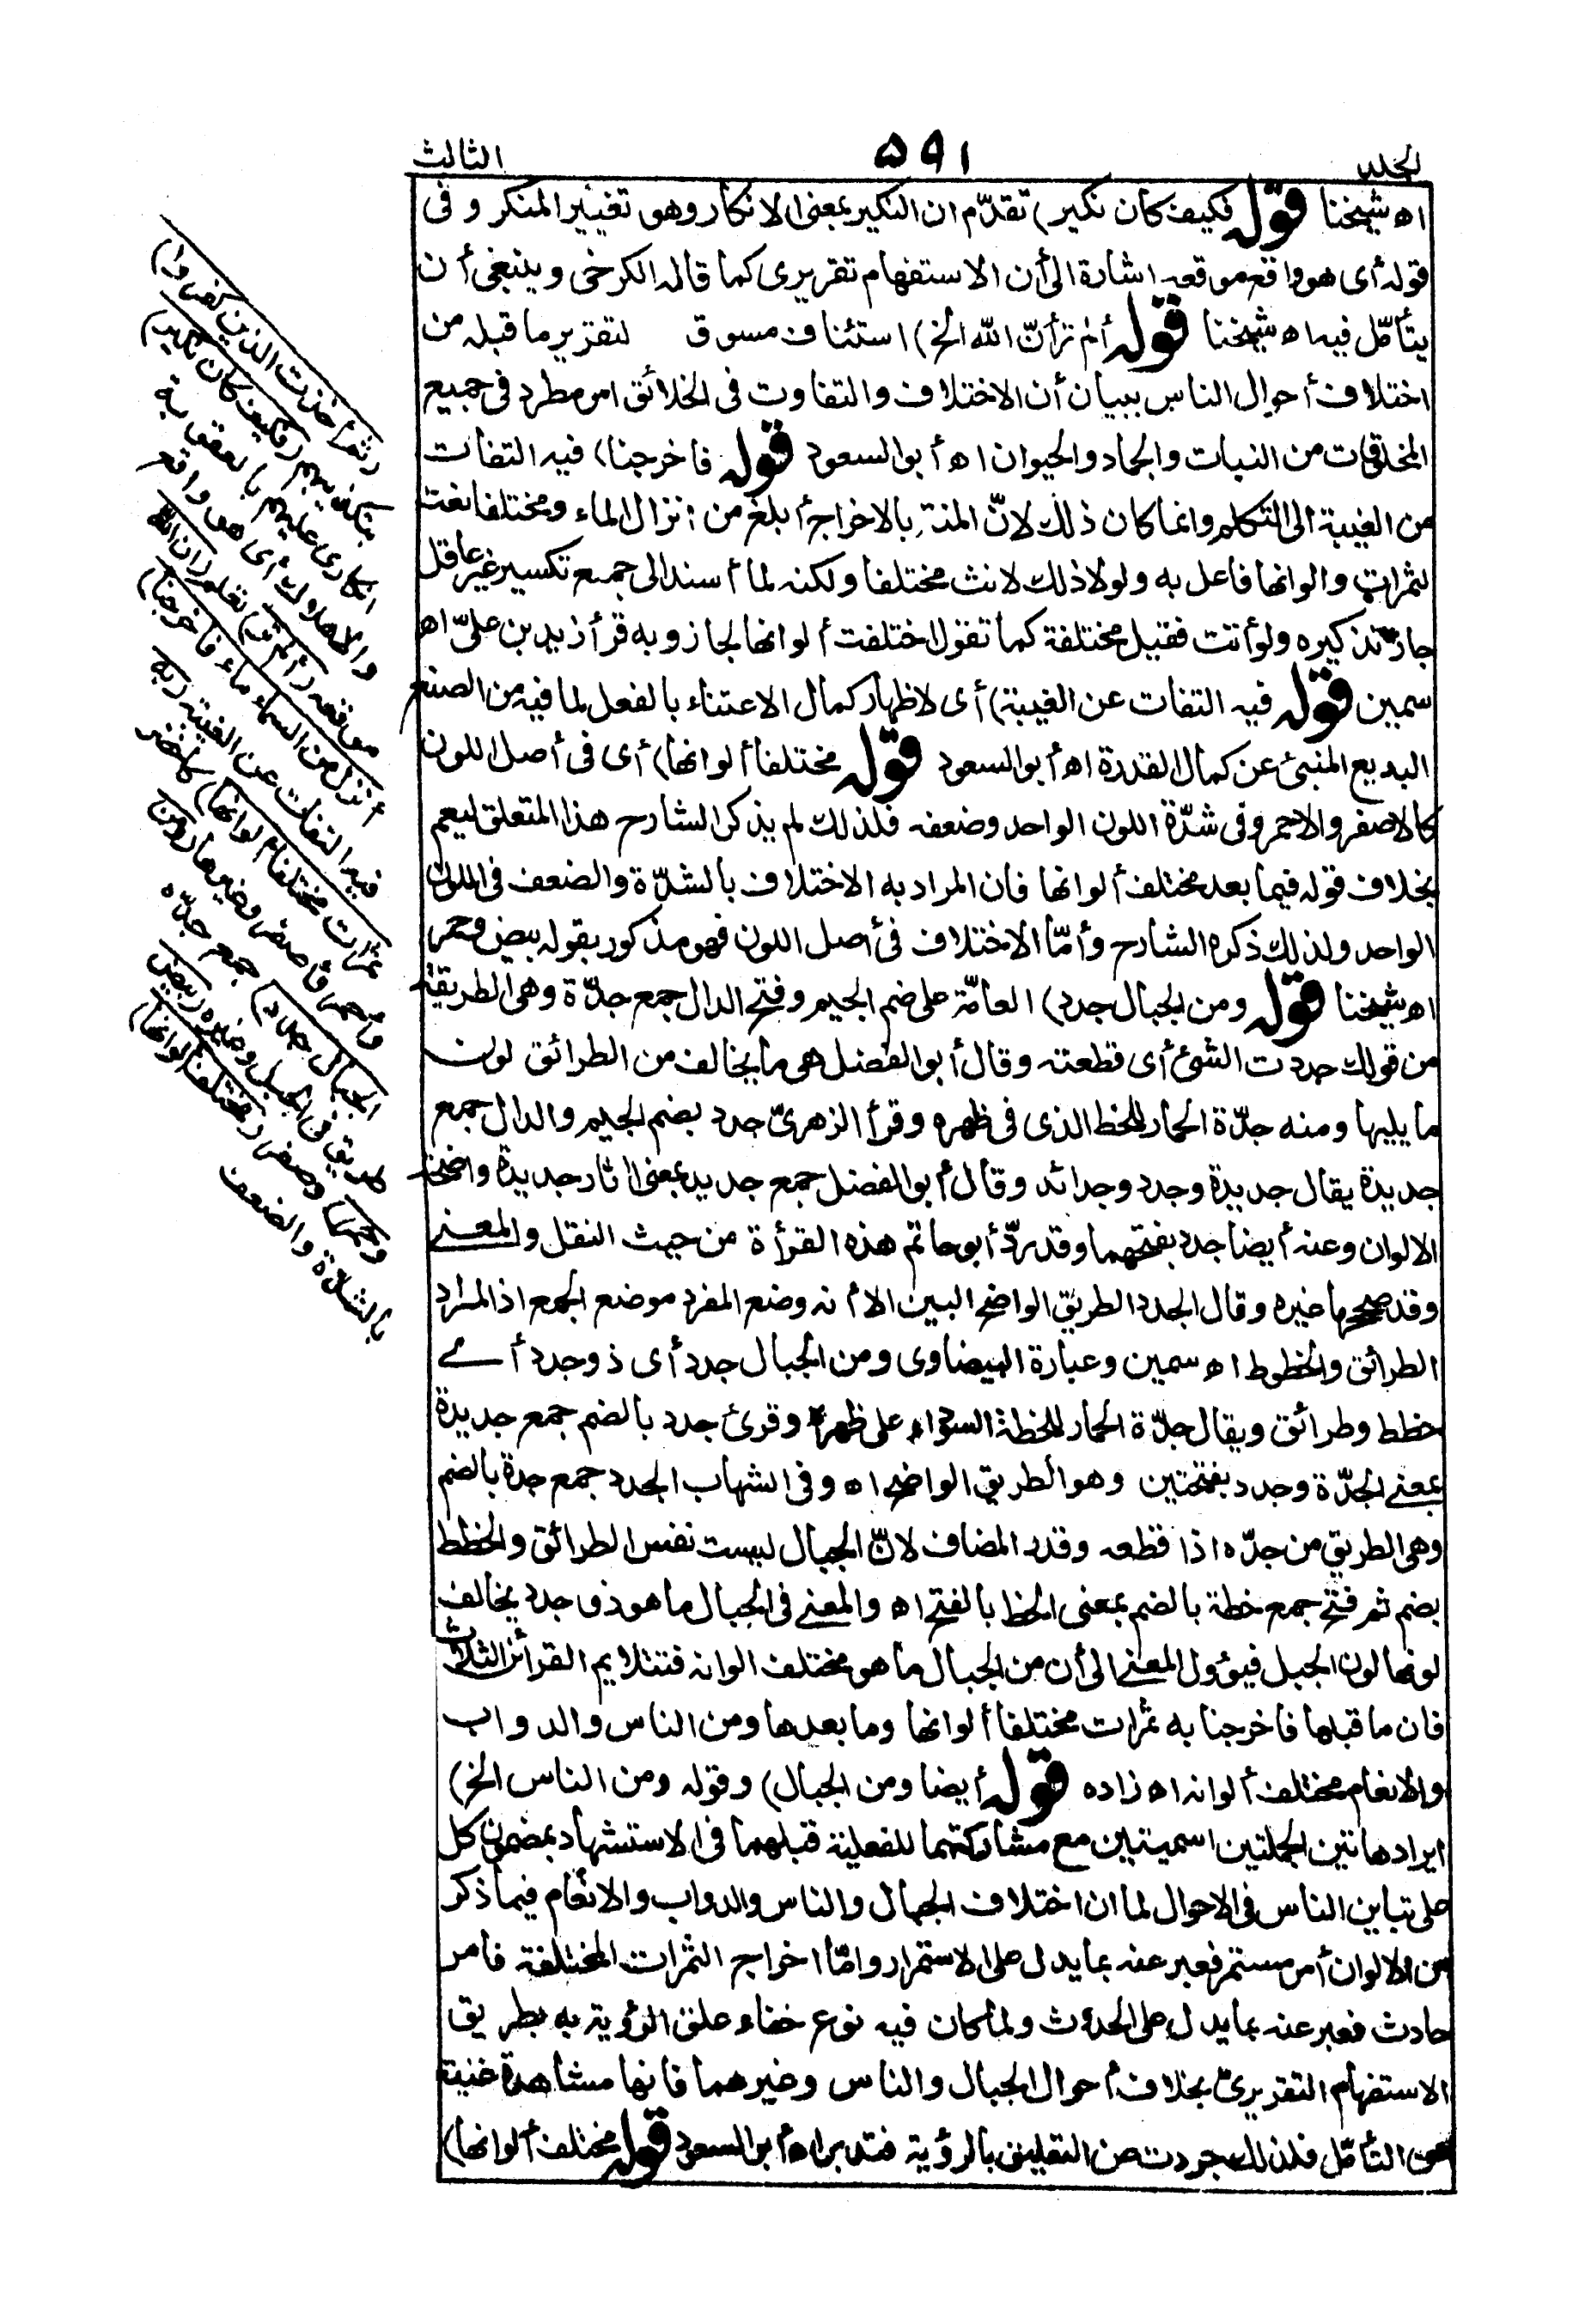 الجلد ۵۹۱ الثالث
اه شيخنا قوله فكيف كان نكير) تقدّم ان النكير بمعنى الانكار وهو تغيير المنكر وفى
قوله أى هو واقع موقعه اشارة الى أن الاستفهام تقريرى كما قاله الكرخى وينبغى أن
يتأمّل فيه اه شيخنا قوله ألم تر أنّ الله الخ) استئناف مسوق لتقرير ما قبله من
اختلاف أحوال الناس ببيان أن الاختلاف والتفاوت فى الخلائق امر مطرد فى جميع
المخلوقات من النبات والجماد والحيوان اه أبو السعود قوله فاخرجنا) فيه التفات
من الغيبة الى التكلم وانما كان ذلك لانّ المنة بالاخراج أبلغ من انزال الماء ومختلفا نعت
لثمرات والوانها فاعل به ولولا ذلك لانث مختلفا ولكنه لما أسند الى جمع تكسير غير عاقل
جاز تذكيره ولو أنثت فقيل مختلفة كما تقول اختلفت ألوانها لجاز وبه قرأ زيد بن علىّ اه
سمين قوله فيه التفات عن الغيبة) أى لاظهار كمال الاعتناء بالفعل لما فيه من الصنع
البديع المنبئ عن كمال القدرة اه أبو السعود قوله مختلفا ألوانها) أى فى أصل اللون
كالاصفر والاحمر وفى شدّة اللون الواحد وضعفه فلذلك لم يذكر الشارح هذا المتعلق ليعم
بخلاف قوله فيما بعد مختلف ألوانها فان المراد به الاختلاف بالشدّة والضعف فى اللون
الواحد ولذلك ذكره الشارح وأمّا الاختلاف فى أصل اللون فهو مذكور بقوله بيض وحمر
اه شيخنا قوله ومن الجبال جدد) العامّة على ضم الجيم وفتح الدال جمع جدّة وهى الطريقة
من قولك جددت الشئ أى قطعته وقال أبو الفضل هى ما يخالف من الطرائق لون
ما يليها ومنه جدّة الحمار للخط الذى فى ظهره وقرأ الزهرىّ جدد بضم الجيم والدال جمع
جديدة يقال جديدة وجدد وجدائد وقال أبو الفضل جمع جديد بمعنى اثار جديدة واضحة
الالوان وعنه أيضا جدد بفتحهما وقد ردّ أبو حاتم هذه القرأة من حيث النقل والمعنى
وقد صححها غيره وقال الجدد الطريق الواضح البين الا أنه وضع المفرد موضع الجمع اذ المراد
الطرائق والخطوط اه سمين وعبارة البيضاوى ومن الجبال جدد أى ذو جدد أى
خطط وطرائق ويقال جدّة الحمار للخطة السوداء على ظهره وقرئ جدد بالضم جمع جديدة
بمعنى الجدّة وجدد بفتحتين وهو الطريق الواضح اه وفى الشهاب الجدد جمع جدة بالضم
وهى الطريق من جدّه اذا قطعه وقدر المضاف لانّ الجبال ليست نفس الطرائق والخطط
بضم ثم فتح جمع خطة بالضم بمعنى الخط بالفتح اه والمعنى فى الجبال ما هو ذو جدد يخالف
لونها لون الجبل فيؤول المعنى الى أن من الجبال ما هو مختلف الوانه فتتلايم القرائن الثلاث
فان ما قبلها فاخرجنا به ثمرات مختلفا ألوانها وما بعدها ومن الناس والدواب
والانعام مختلف ألوانه اه زاده قوله أيضا ومن الجبال) وقوله ومن الناس الخ)
ايراد هاتين الجملتين اسميتين مع مشاركتهما للفعلية قبلهما فى الاستشهاد بمضمون كل
على تباين الناس فى الاحوال لما ان اختلاف الجبال والناس والدواب والانعام فيما ذكر
من الالوان أمر مستمر فعبر عنه بما يدل على الاستمرار وامّا اخراج الثمرات المختلفة فامر
حادث فعبر عنه بما يدل على الحدوث ولما كان فيه نوع خفاء علق الرؤية به بطريق
الاستفهام التقريرىّ بخلاف أحوال الجبال والناس وغيرهما فانها مشاهدة غنية
عن التأمّل فلذلك جردت عن التعليق بالرؤية فتدبر اه أبو السعود قوله مختلف ألوانها)
(ثم أخذت الذين كفروا)
بتكذيبهم (فكيف كان نكير)
انكارى عليهم بالعقوبة
والاهلاك أى هو واقع
موقعه (ألم تر) تعلم (ان الله
أنزل من السماء ماء فاخرجنا)
فيه التفات عن الغيبة (به
ثمرات مختلفا الوانها) كاخضر
وأحمر وأصفر وغيرها (ومن
الجبال جدد) جمع جدّه
طريق فى الجبل وغيره (بيض
وحمر) وصفر (مختلف ألوانها)
بالشدّة والضعف